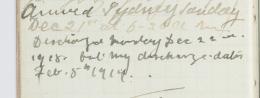 arrived Sydney Sunday
Dec 21st at 6-30
Discharged Monday Dec 22nd
1918. but my discharge dates
Feb. 5th 1919.